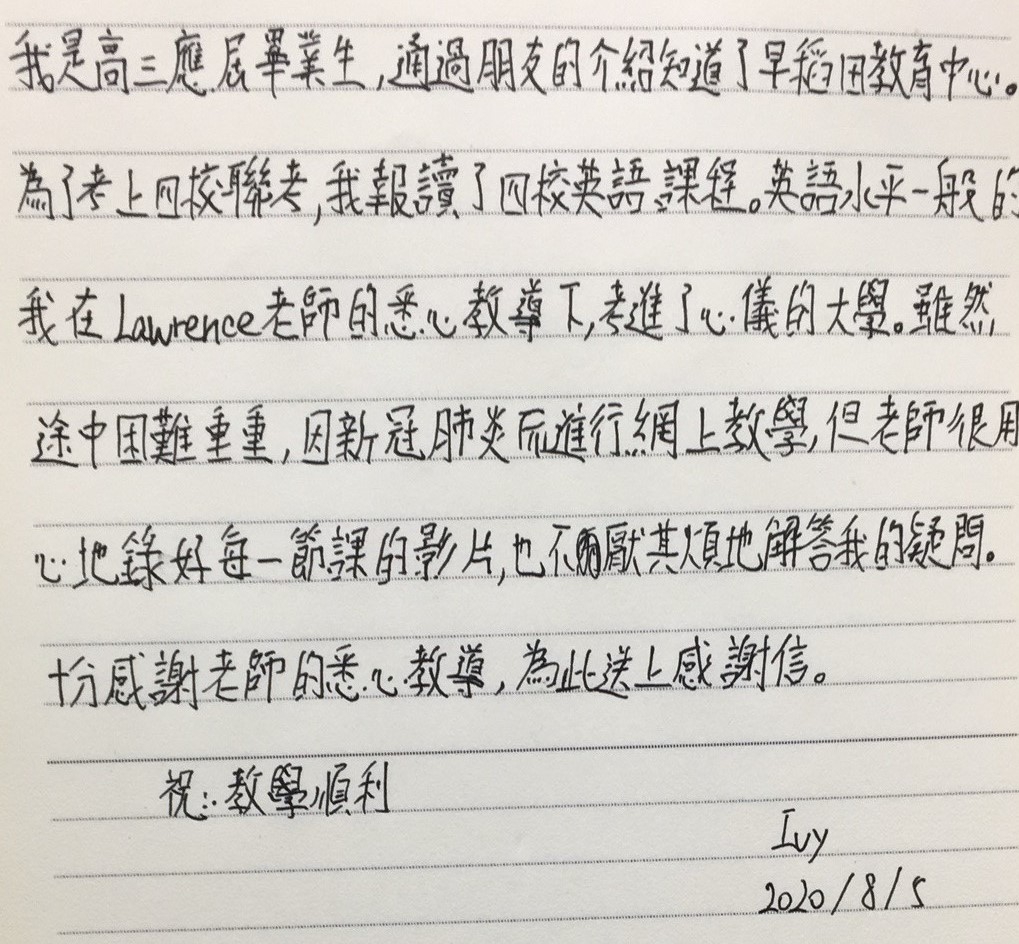 我是高三應屆畢業生,通過朋友的介紹知道了早稻田教育中心。
為了考上四校聯考,我報讀了四校英語課程。英語水平一般的
我在Lawrence老師的悉心教導下,考進了心儀的大學。雖然
途中困難重重,因新冠肺炎而進行網上教學,但老師很用
心地錄好每一節課的影片,也不厭其煩地解答我的疑問。
十分感謝老師的悉心教導,為此送上感謝信。
祝:教學順利
Ivy
2020/8/5